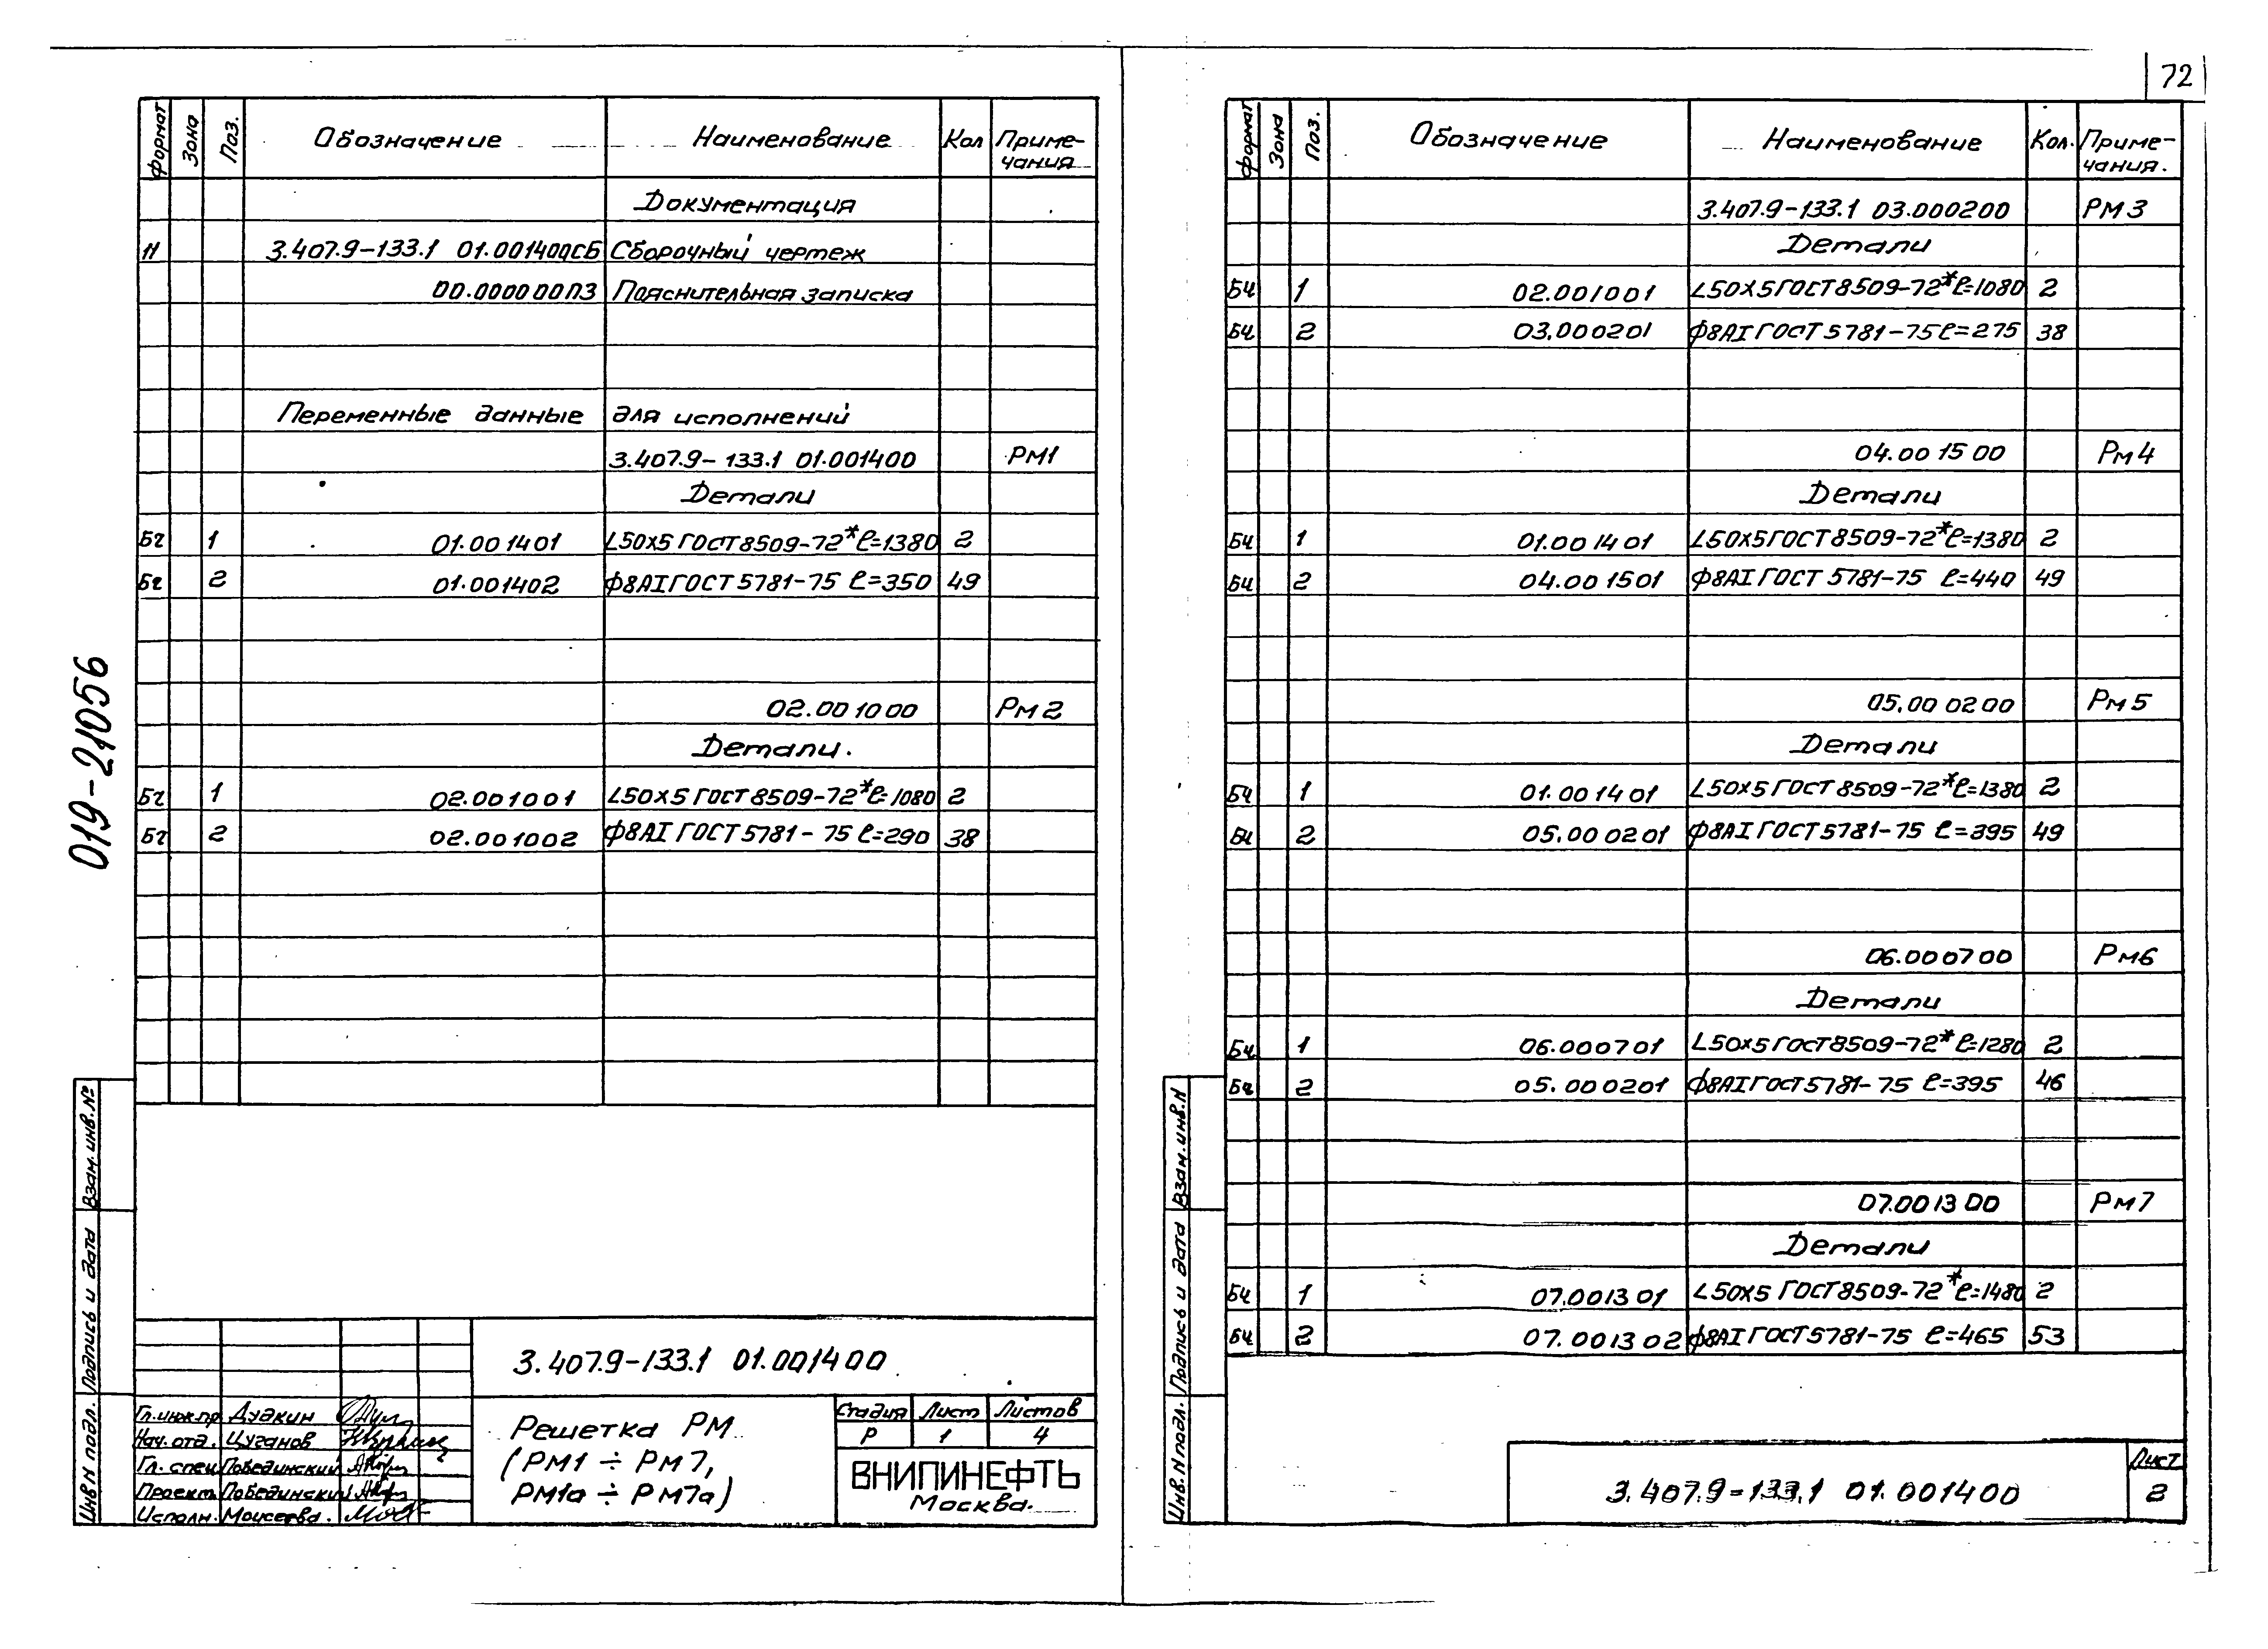 72
019-21056
Формат Зона Поз. Обозначение Наименование Кол Приме-
чания
Документация
3.407.9-133.1 01.001400СБ Сборочный чертеж
00.000000ПЗ Пояснительная записка
Переменные данные для исполнений
3.407.9-133.1 01.001400 РМ1
Детали
Бч 1 01.001401 L50х5 ГОСТ 8509-72* ℓ=1380 2
Бч 2 01.001402 ф8АI ГОСТ 5781-75 ℓ=350 49
02.001000 РМ2
Детали.
Бч 1 02.001001 L50х5 ГОСТ 8509-72* ℓ=1080 2
Бч 2 02.001002 ф8АI ГОСТ 5781-75 ℓ=290 38
Взам. инв. №
Подпись и дата
Инв.N подл.
3.407.9-133.1 01.001400
Гл.инж.пр Дудкин
Нач. отд. Цуганов
Гл. спец Побединский
Проект. Побединский
Исполн. Моисеева.
Решетка РМ
(РМ1 ÷ РМ7,
РМ1а ÷ РМ7а)
Стадия Лист Листов
Р 1 4
ВНИПИНЕФТЬ
Москва.
Формат Зона Поз. Обозначение Наименование Кол. Приме-
чания.
3.407.9-133.1 03.000200 РМ3
Детали
Бч 1 02.001001 L50х5 ГОСТ 8509-72* ℓ=1080 2
Бч 2 03.000201 ф8АI ГОСТ 5781-75 ℓ=275 38
04.001500 РМ4
Детали
Бч 1 01.001401 L50х5 ГОСТ 8509-72* ℓ=1380 2
Бч 2 04.001501 ф8АI ГОСТ 5781-75 ℓ=440 49
05.000200 РМ5
Детали
Бч 1 01.001401 L50х5 ГОСТ 8509-72* ℓ=1380 2
Бч 2 05.000201 ф8АI ГОСТ 5781-75 ℓ=395 49
06.000700 РМ6
Детали
Бч 1 06.000701 L50х5 ГОСТ 8509-72* ℓ=1280 2
Бч 2 05.000201 ф8АI ГОСТ 5781-75 ℓ=395 46
07.001300 РМ7
Детали
Бч 1 07.001301 L50х5 ГОСТ 8509-72* ℓ=1480 2
Бч 2 07.001302 ф8АI ГОСТ 5781-75 ℓ=465 53
Взам. инв.N
Подпись и дата
Инв.N подл.
3.407.9-133.1 01.001400
Лист
2